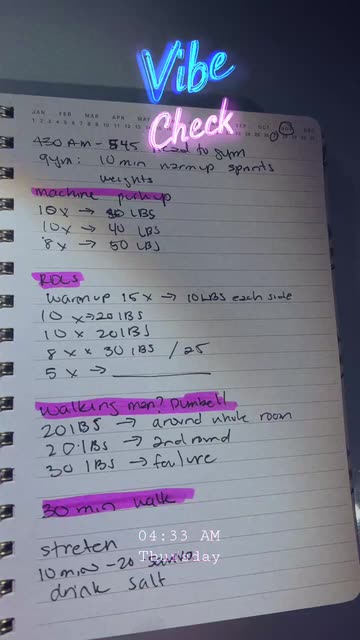 Vibe
Check
JAN FEB MAR APR MAY OCT NOV DEC
430 AM - 545 head to gym
gym: 10 min warmup sprints
weights
machine pickup
10x → 30 LBS
10x → 40 LBS
8x → 50 LBS
RDLS
warmup 15x → 10 LBS each side
10 x → 20 LBS
10 x 20 LBS
8 x x 30 LBS / 25
5 x →
walking men? Dumbell
20 LBS → around whole room
20 LBS → 2nd round
30 LBS → failure
30 min walk
04:33 AM
Thursday
stretch
10 min - 20
drink salt